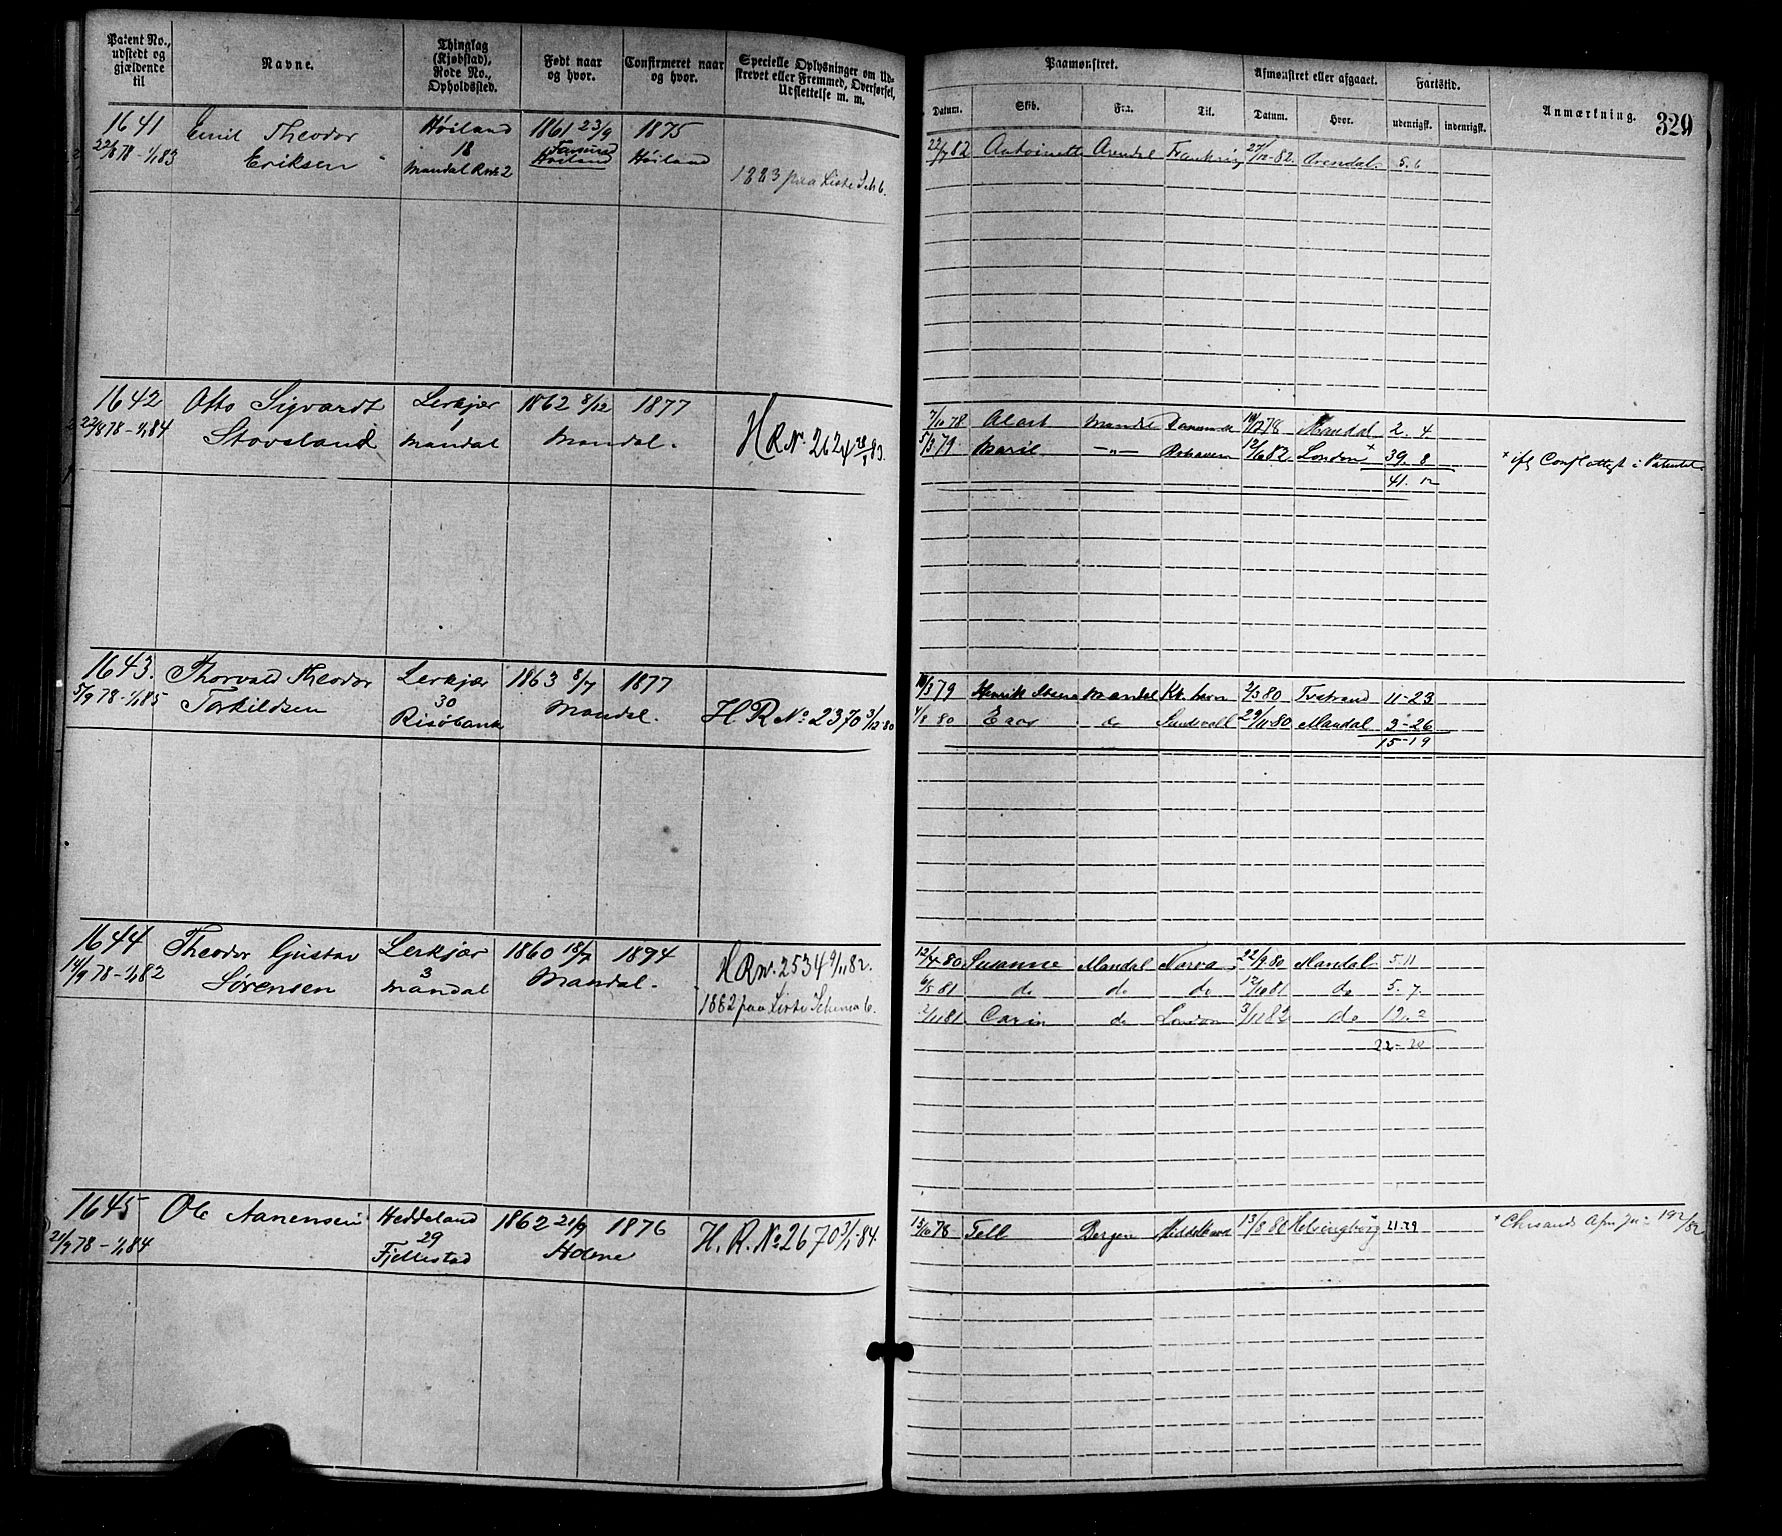 Patent No., udstedt og gjældende til
Navne.
Thinglag (Kjøbstad), Rode No., Opholdssted.
Født naar og hvor.
Confirmeret naar og hvor.
Specielle Oplysninger om Udskrevet eller Fremmed, Overførsel, Udslettelse m. m.
Paamønstret.
Afmønstret eller afgaaet.
Fartstid.
Anmærkning.
329
Datum. Skib. Fra. Til. Datum. Hvor. udenrigsk. indenrigsk.
1641 Emil Theodor Høiland 1861 23/9 1875
22/8 78 - 1/1 83 Eriksen 18 Høiland Høiland
Mandal Rode 2
1883 paa Liste Sch 6.
22/7 82 Antoinette Arendal 27/12-82. Arendal. 5.6
1642 Otto Sigvardt Lerkjær 1862 8/12 1877
22/8 78 - 1/1 84 Stovsland Mandal Mandal.
H R No. 2624
7/10 78 Mandal 2. 4
5/3 79 -"- 12/6 82. London × 39. 8
41. 12
1643. Thorvald Theodor Lerkjær 1863 8/7 1877
5/9 78 - 1/1 85 Torkildsen 30 Mandal.
Risøbank
H R No 2370 3/12-80
10/3 79 Mandal 2/3 80 Tvstrand 11-23
4/8 80 do Sundsvall 29/11-80 Mandal 3-26
15-19
1644 Theodor Gustav Lerkjær 1860 18/7 1894
14/9 78 - 1/1 82 Sørensen 3 Mandal.
Mandal
H R No. 2534 9/11 82.
1882 paa Liste Schema 6.
12/4-80 Susanne Mandal Narva 22/9 80 Mandal. 5.11
6/5 81 do do do 12/10 81 do 5. 7.
2/11 81 Carin do London 3/11 82 do 12. 2
22-20
1645 Ole Aanensen Heddeland 1862 21/9 1876
21/9 78 - 1/1 84 29 Holme
Fjellestad
H. R. No 2670 3/1-84.
15/10 78 Tell Bergen 13/8 80 Helsingborg 21.29